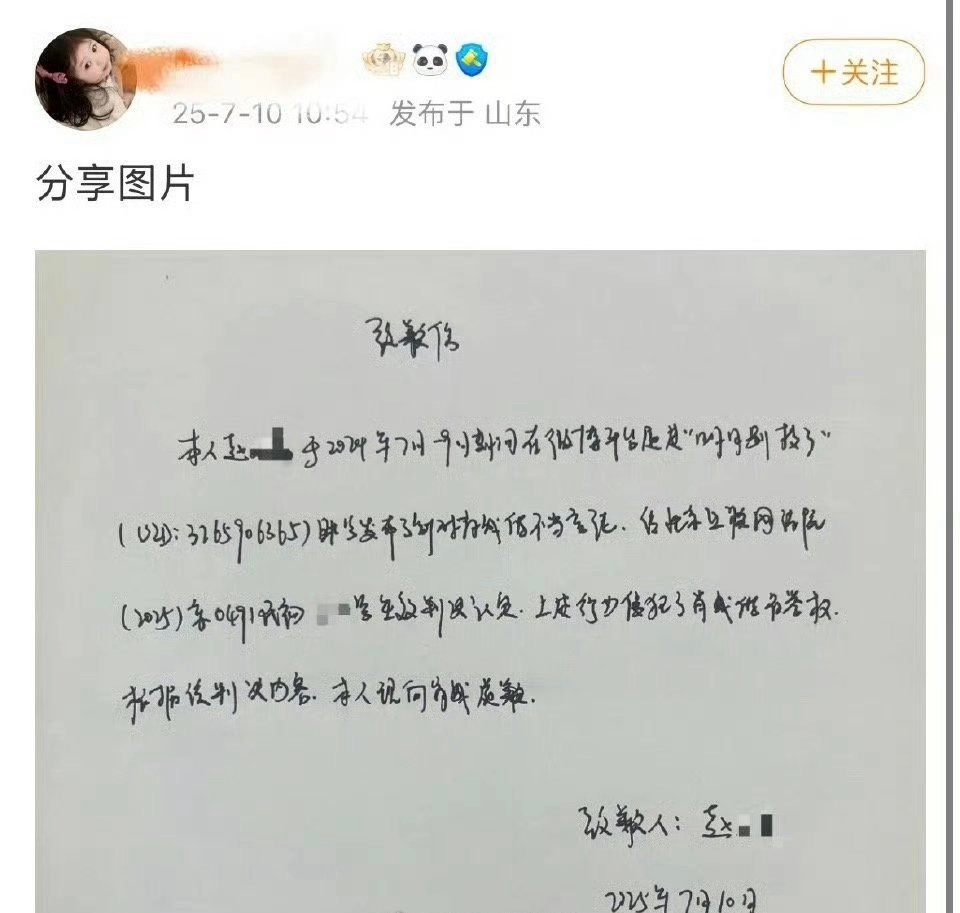 25-7-10 10:54 发布于 山东
+关注
分享图片
致歉信
本人赵 于2024年7月-9月期间在微博平台通过“ 别救了”
(UID: 3265906365)账号发布了针对肖战的不当言论. 经北京互联网法院
(2025)京0491民初 号生效判决认定. 上述行为侵犯了肖战的名誉权.
根据该判决内容. 本人现向肖战致歉.
致歉人: 赵
2025年7月10日